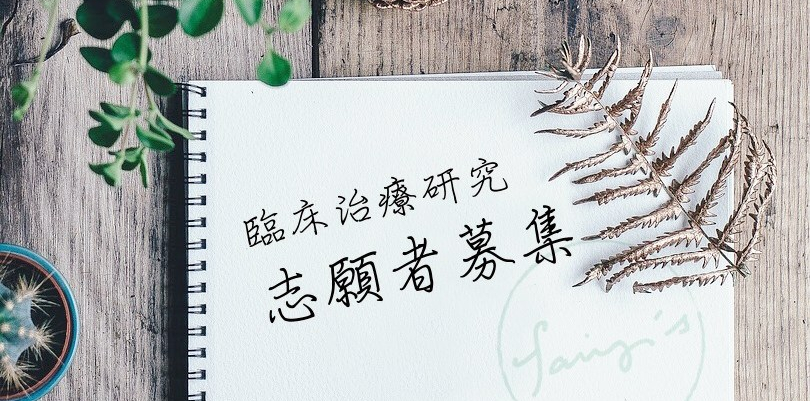 臨床治療研究
志願者募集